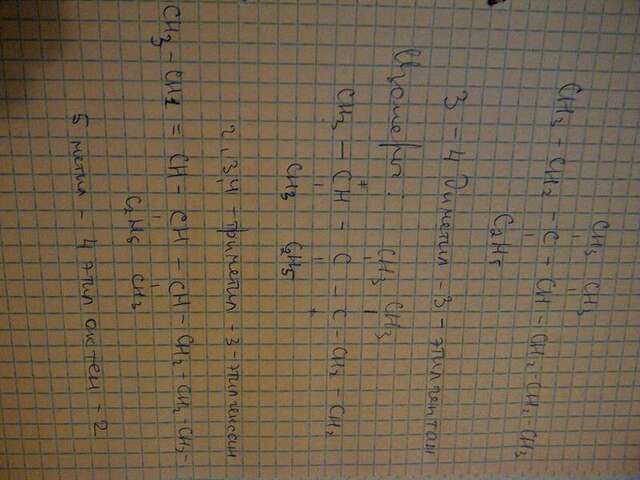 CH3 CH3
CH3 - CH2 - C - CH - CH2 - CH2 - CH3
C2H5
3 - 4 диметил - 3 - этилгептан
Изомеры:
CH3 CH3
CH3 - CH - C - C - CH2 - CH2
CH3 C2H5
2,3,4 триметил - 3 - этилгексан
CH3 - CH2 = CH - CH - CH - CH2 - CH2 - CH3 -
C2H5 CH3
5 метил - 4 этил октен - 2